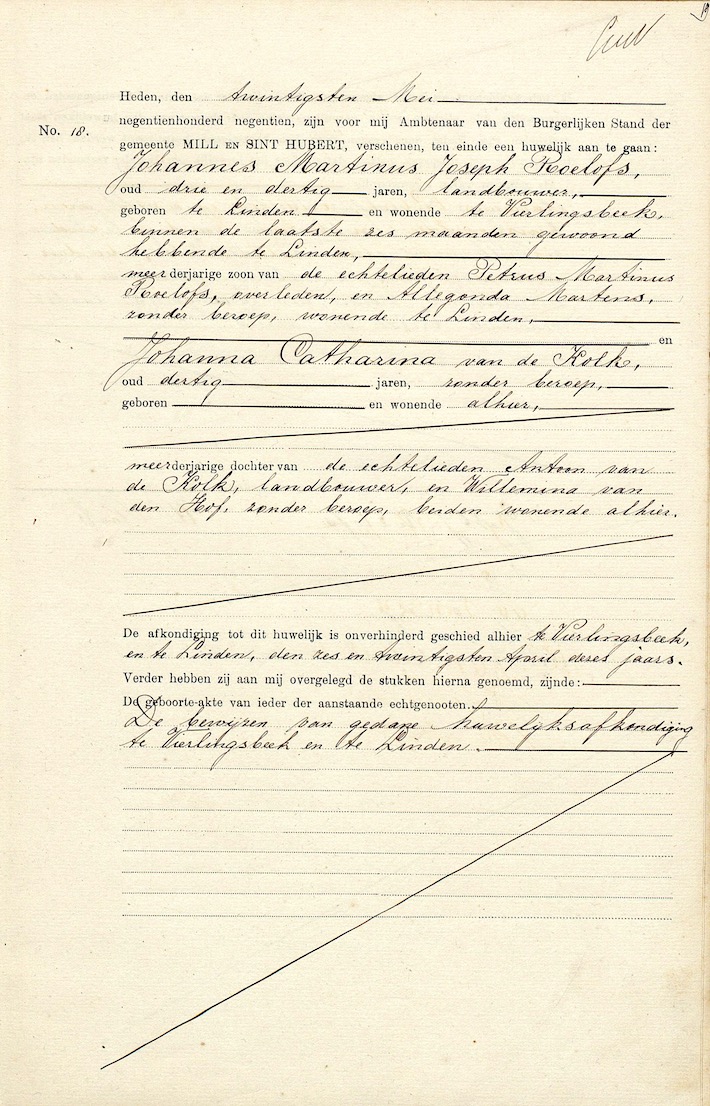 Heden, den twintigsten Mei
No. 18.
negentienhonderd negentien, zijn voor mij Ambtenaar van den Burgerlijken Stand der
gemeente MILL EN SINT HUBERT, verschenen, ten einde een huwelijk aan te gaan:
Johannes Martinus Joseph Roelofs,
oud drie en dertig jaren, landbouwer,
geboren te Linden en wonende te Vierlingsbeek,
binnen de laatste zes maanden gewoond
hebbende te Linden,
meerderjarige zoon van de echtelieden Petrus Martinus
Roelofs, overleden, en Allegonda Martens,
zonder beroep, wonende te Linden,
en
Johanna Catharina van de Kolk,
oud dertig jaren, zonder beroep,
geboren en wonende alhier,
meerderjarige dochter van de echtelieden Antoon van
de Kolk, landbouwer, en Willemina van
den Hof, zonder beroep, beiden wonende alhier.
De afkondiging tot dit huwelijk is onverhinderd geschied alhier te Vierlingsbeek,
en te Linden, den zes en twintigsten April dezes jaars.
Verder hebben zij aan mij overgelegd de stukken hierna genoemd, zijnde:
De geboorte-akte van ieder der aanstaande echtgenooten.
De bewijzen van gedane huwelijksafkondiging
te Vierlingsbeek en te Linden.